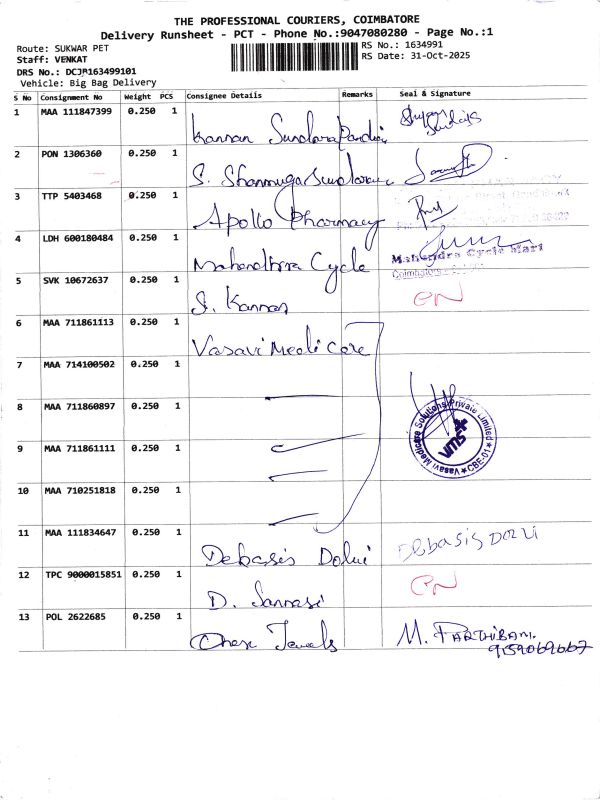 THE PROFESSIONAL COURIERS, COIMBATORE
Delivery Runsheet - PCT - Phone No.:9047080280 - Page No.:1
Route: SUKWAR PET
RS No.: 1634991
Staff: VENKAT
RS Date: 31-Oct-2025
DRS No.: DCJP163499101
Vehicle: Big Bag Delivery
S No Consignment No Weight PCS Consignee Details Remarks Seal & Signature
1 MAA 111847399 0.250 1 Kannan Sundara Pandian
2 PON 1306360 0.250 1 S. Shanmugasundaram
3 TTP 5403468 0.250 1 Apollo Pharmacy
4 LDH 600180484 0.250 1 Mahendhra Cycle Mahendra Cycle Mart
Coimbatore
5 SVK 10672637 0.250 1 S. Kannan PN
6 MAA 711861113 0.250 1 Vasavi Medi Care
7 MAA 714100502 0.250 1
8 MAA 711860897 0.250 1
Vasavi Medicare Solutions Private Limited ★ CBE-01 ★
VMS
9 MAA 711861111 0.250 1
10 MAA 710251818 0.250 1
11 MAA 111834647 0.250 1 Debasis Dolui Debasis Dolui
12 TPC 9000015851 0.250 1 D. Sannasi PN
13 POL 2622685 0.250 1 Jewels M. PARTHIBAN.
9159069667